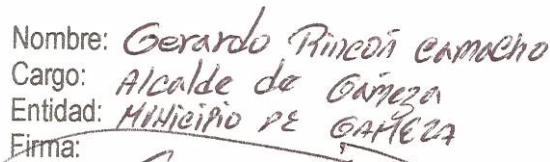 Nombre: Gerardo Rincón Camacho
Cargo: Alcalde de Gámeza
Entidad: Municipio de GAMEZA
Firma: